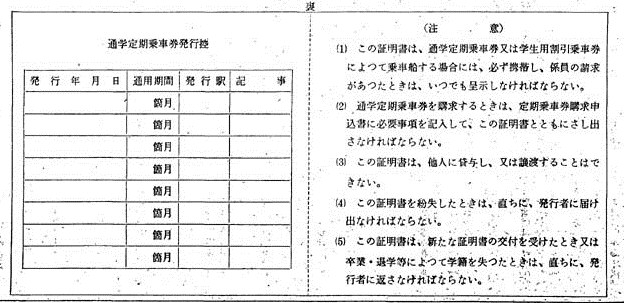 裏
通学定期乗車券発行控
発行年月日 通用期間 発行駅 記事
箇月
箇月
箇月
箇月
箇月
箇月
箇月
箇月
(注意)
(1) この証明書は、通学定期乗車券又は学生用割引乗車券
によつて乗車船する場合には、必ず携帯し、係員の請求
があつたときは、いつでも呈示しなければならない。
(2) 通学定期乗車券を購求するときは、定期乗車券購求申
込書に必要事項を記入して、この証明書とともにさし出
さなければならない。
(3) この証明書は、他人に貸与し、又は譲渡することはで
きない。
(4) この証明書を紛失したときは、直ちに、発行者に届け
出なければならない。
(5) この証明書は、新たな証明書の交付を受けたとき又は
卒業・退学等によつて学籍を失つたときは、直ちに、発
行者に返さなければならない。